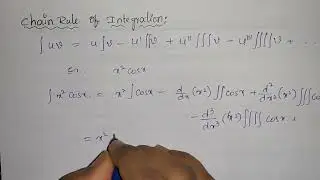 Chain Rule Of Integration:
∫uv = u∫v - u'∫∫v + u''∫∫∫v - u'''∫∫∫∫v + ...
x² cosx
∫x² cosx = x²∫cosx - d/dx (x²)∫∫cosx + d²/dx² (x²)∫∫∫cos
- d³/dx³ (x²)∫∫∫∫cosx
= x²